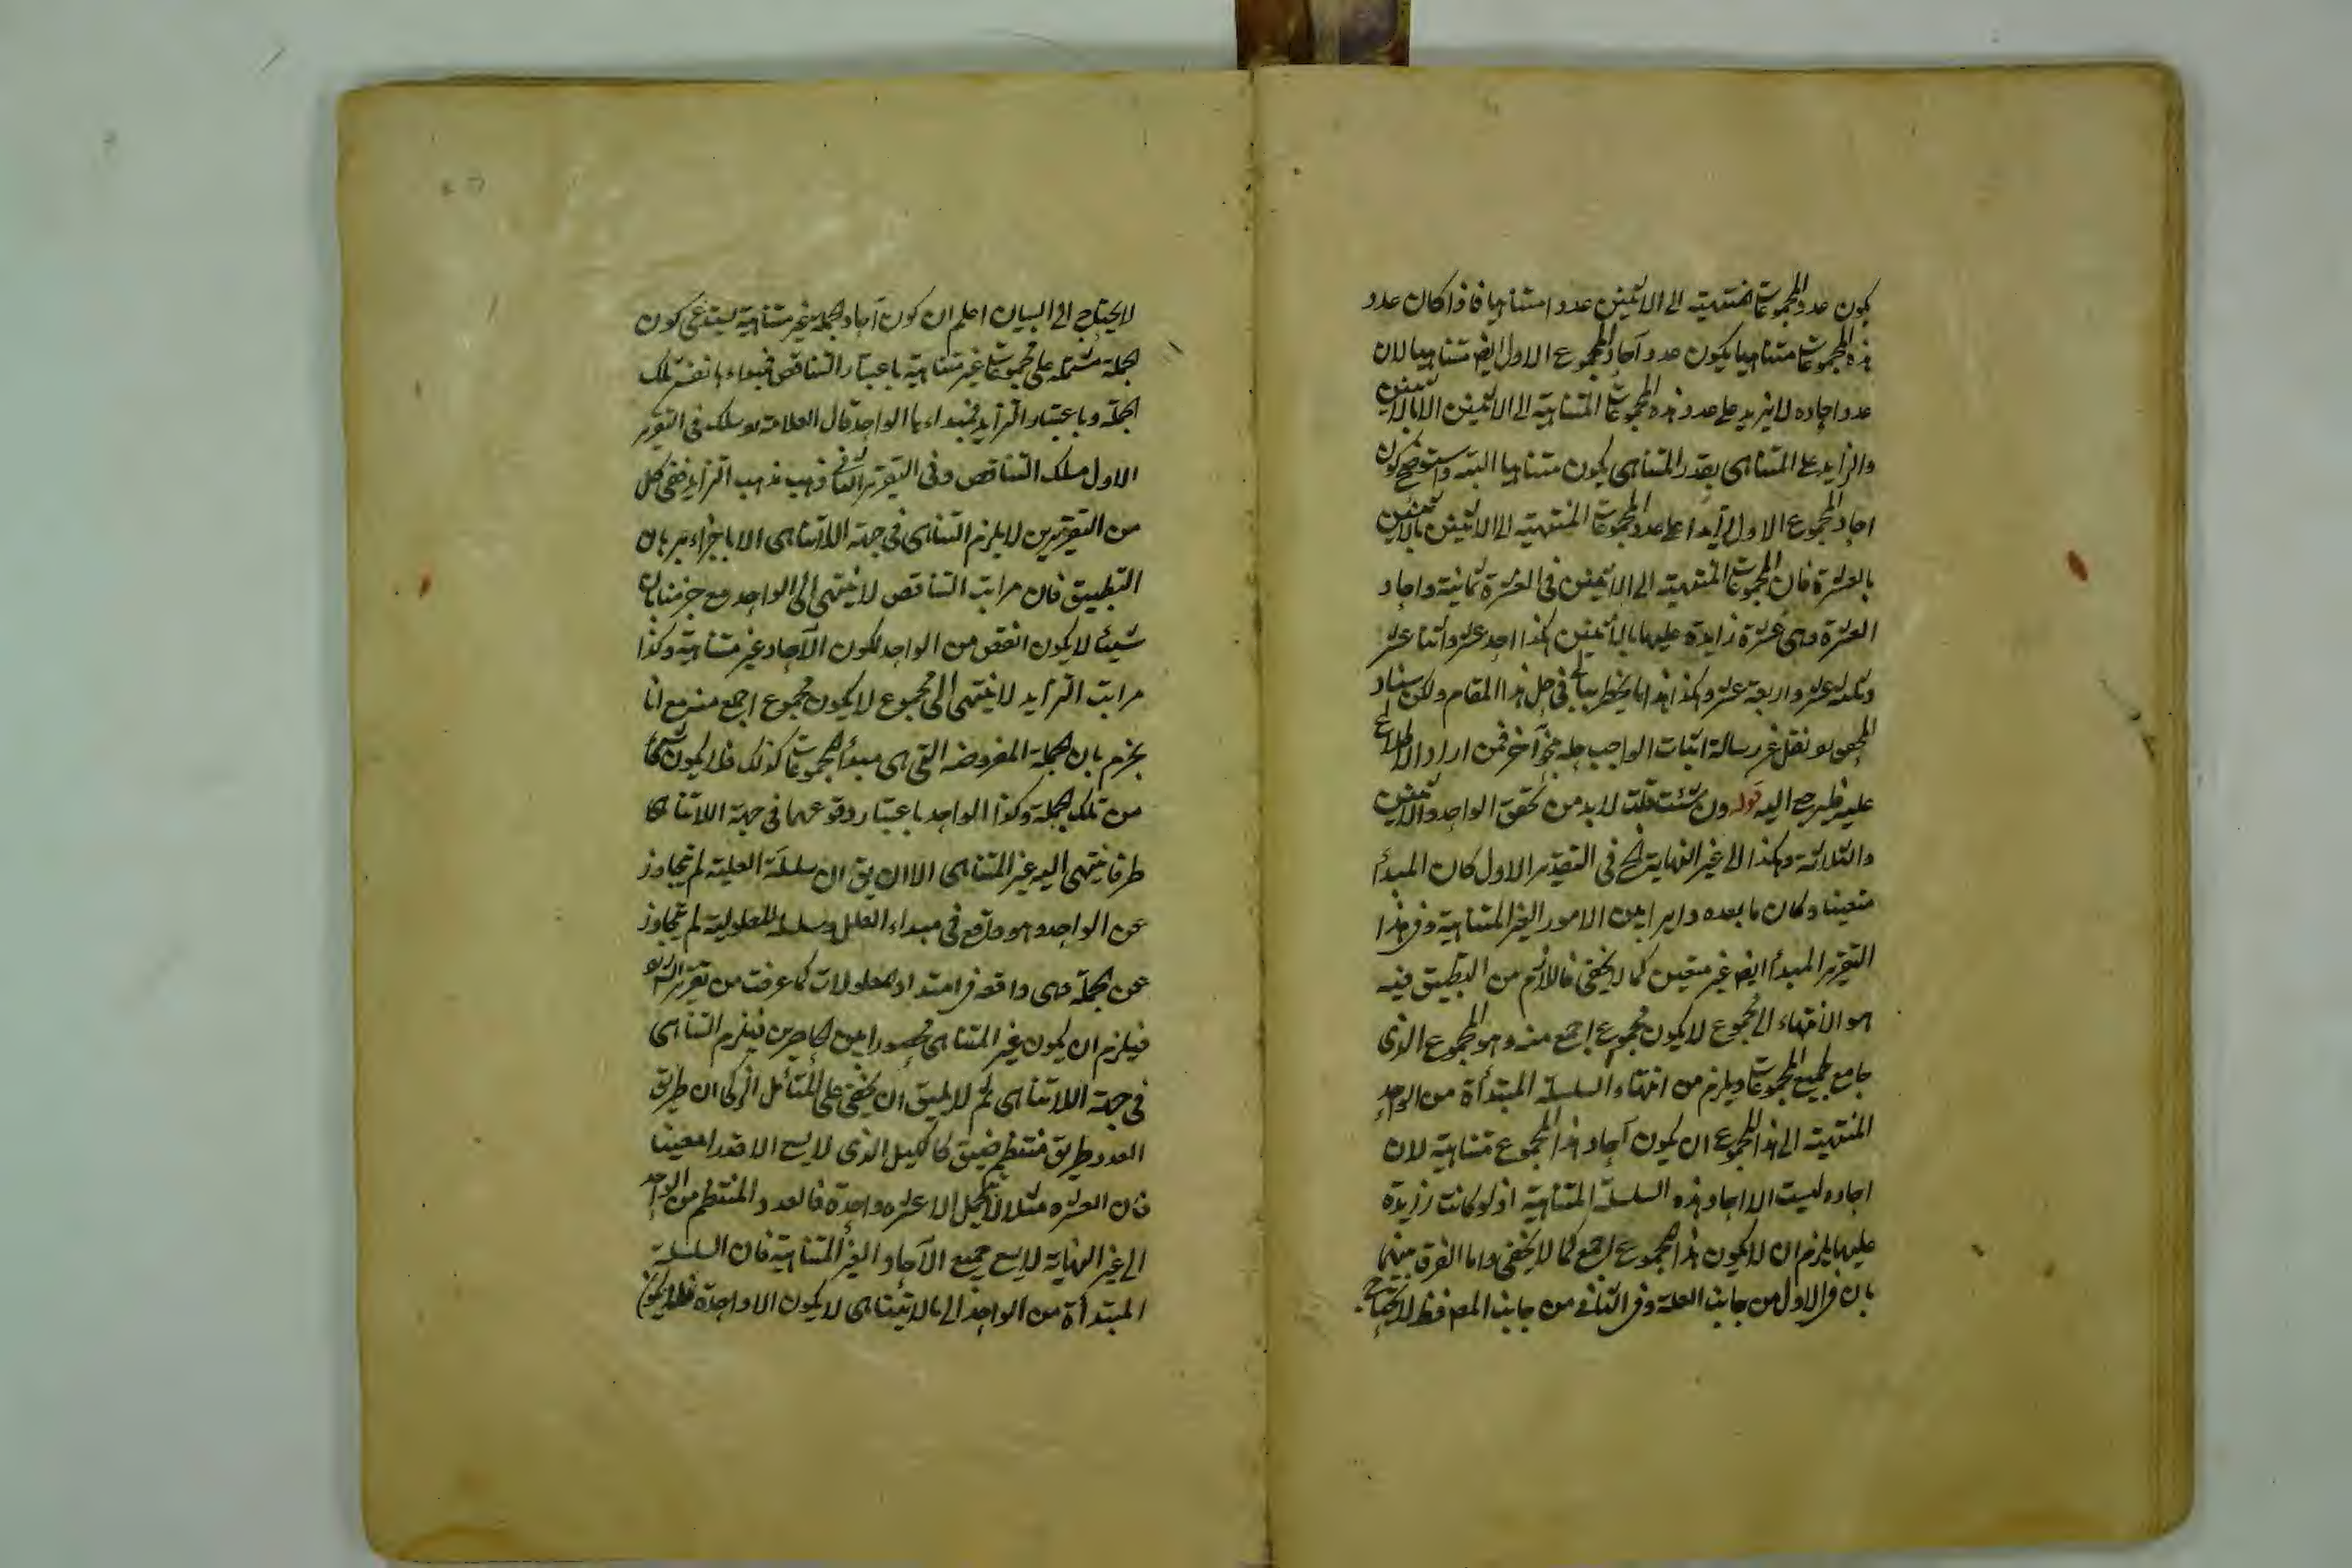 يكون عدد المجموعات المنتهية الى الاثنين عددا متناهيا فاذا كان عدد
هذه المجموعات متناهيا يكون عدد آحاد المجموع الاول ايضا متناهيا لان
عدد احاده لا يزيد على عدد هذه المجموعات المتناهية الى الاثنين الا بالاثنين
والزايد على المتناهى بقدر المتناهى يكون متناهيا البتة واستوضح كون
احاد المجموع الاول زايدا على عدد المجموعات المنتهية الى الاثنين بالاثنين
بالعشرة فان المجموعات المنتهية الى الاثنين فى العشرة ثمانية واحاد
العشرة وهى عشرة زايدة عليها بالاثنين هكذا احد عشر واثنا عشر
وثلثة عشر واربعة عشر وهكذا هذا ما يخطر ببالى فى حل هذا المقام ولكن
نقل عن رسالة اثبات الواجب حله بنحو آخر فمن اراد الاطلاع
عليه فليرجع اليه قوله وان شئت قلت لابد من تحقق الواحد والاثنين
والثلاثة وهكذا الى غير النهاية الخ فى التقدير الاول كان المبدأ
متعينا وكان ما بعده دايرا بين الامور الغير المتناهية وفى هذا
التقرير المبدأ ايضا غير متعين كما لا يخفى فاللازم من التطبيق فيه
هو الانتهاء الى مجموع لا يكون مجموع اجمع منه وهو المجموع الذى
جامع لجميع المجموعات ويلزم من انتهاء السلسلة المبتدأة من الواحد
المنتهية الى هذا المجموع ان يكون آحاد هذا المجموع متناهية لان
احاده ليست الا احاد هذه السلسلة المتناهية اذ لو كانت زايدة
عليها يلزم ان لا يكون هذا المجموع اجمع كما لا يخفى واما الفرق بينهما
بان فى الاول من جانب العلة وفى الثانى من جانب المع فظ لا يحتاج
لا يحتاج الى البيان اعلم ان كون آحاد الجملة غير متناهية يستدعى كون
الجملة مشتملة على مجموعات غير متناهية باعتبار التناقص فمبداءها نفس تلك
الجملة وباعتبار التزايد فمبداءها الواحد قال العلامة سلك فى التقرير
الاول مسلك التناقص وفى التقرير الثانى ذهب مذهب التزايد ففى كل
من التقريرين لا يلزم التناهى فى جهة اللاتناهى الا باجزاء برهان
التطبيق فان مراتب التناقص لا ينتهى الى الواحد مع جزمنا بان
شيئا لا يكون انقص من الواحد لكون الآحاد غير متناهية وكذا
مراتب التزايد لا ينتهى الى مجموع لا يكون مجموع اجمع منه مع انا
نجزم بان الجملة المفروضة التى هى مبدأ المجموعات كذلك فلا يكون
من تلك الجملة وكذا الواحد باعتبار وقوعهما فى جهة اللاتناهى
طرفا ينتهى اليه غير المتناهى الا ان يق ان سلسلة العلية لم يتجاوز
عن الواحد وهو واقع فى مبداء العلل وسلسلة المعلولية لم يتجاوز
عن الجملة وهى واقعة فى امتداد المعلولات كما عرفت من تقرير
فيلزم ان يكون غير المتناهى محصورا بين الحاصرين فيلزم التناهى
فى جهة اللاتناهى ثم لا يليق ان يخفى على المتأمل الزكى ان طريق
العدد طريق منتظم ضيق كالكيل الذى لا يسع الا قدرا معينا
فان العشرة مثلا لا يحمل الا عشرة واحدة فالعدد المنتظم من الواحد
الى غير النهاية لا يسع جميع الآحاد الغير المتناهية فان السلسلة
المبتدأة من الواحد الى ما لا يتناهى لا يكون الا واحدة